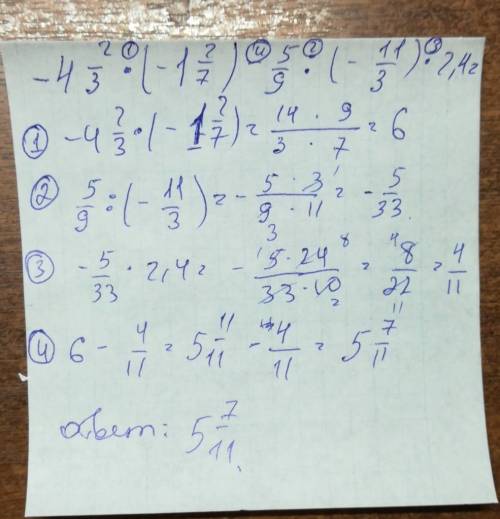 -4 2/3 · (-1 2/7) + 5/9 : (-11/3) · 2,4 =
① -4 2/3 · (-1 2/7) = 14 · 9 / 3 · 7 = 6
② 5/9 : (-11/3) = - 5 · 3 / 9 · 11 = - 5/33
③ - 5/33 · 2,4 = - 5 · 24 / 33 · 10 = 8/22 = 4/11
④ 6 - 4/11 = 5 11/11 - 4/11 = 5 7/11
ответ: 5 7/11